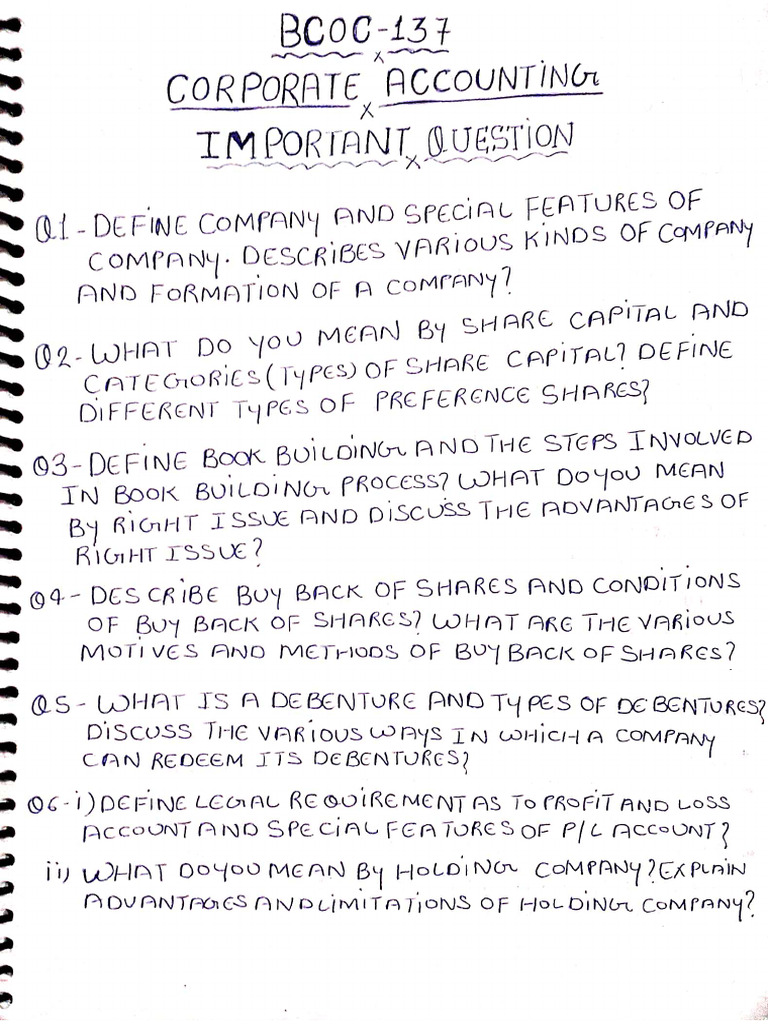 BCOC-137
x
CORPORATE ACCOUNTING
x
IMPORTANT QUESTION
x
Q1-DEFINE COMPANY AND SPECIAL FEATURES OF
COMPANY. DESCRIBES VARIOUS KINDS OF COMPANY
AND FORMATION OF A COMPANY?
Q2-WHAT DO YOU MEAN BY SHARE CAPITAL AND
CATEGORIES (TYPES) OF SHARE CAPITAL? DEFINE
DIFFERENT TYPES OF PREFERENCE SHARES?
Q3-DEFINE BOOK BUILDING AND THE STEPS INVOLVED
IN BOOK BUILDING PROCESS? WHAT DO YOU MEAN
BY RIGHT ISSUE AND DISCUSS THE ADVANTAGES OF
RIGHT ISSUE?
Q4-DESCRIBE BUY BACK OF SHARES AND CONDITIONS
OF BUY BACK OF SHARES? WHAT ARE THE VARIOUS
MOTIVES AND METHODS OF BUY BACK OF SHARES?
Q5-WHAT IS A DEBENTURE AND TYPES OF DEBENTURES?
DISCUSS THE VARIOUS WAYS IN WHICH A COMPANY
CAN REDEEM ITS DEBENTURES?
Q6-i) DEFINE LEGAL REQUIREMENT AS TO PROFIT AND LOSS
ACCOUNT AND SPECIAL FEATURES OF P/L ACCOUNT?
ii) WHAT DO YOU MEAN BY HOLDING COMPANY? EXPLAIN
ADVANTAGES AND LIMITATIONS OF HOLDING COMPANY?